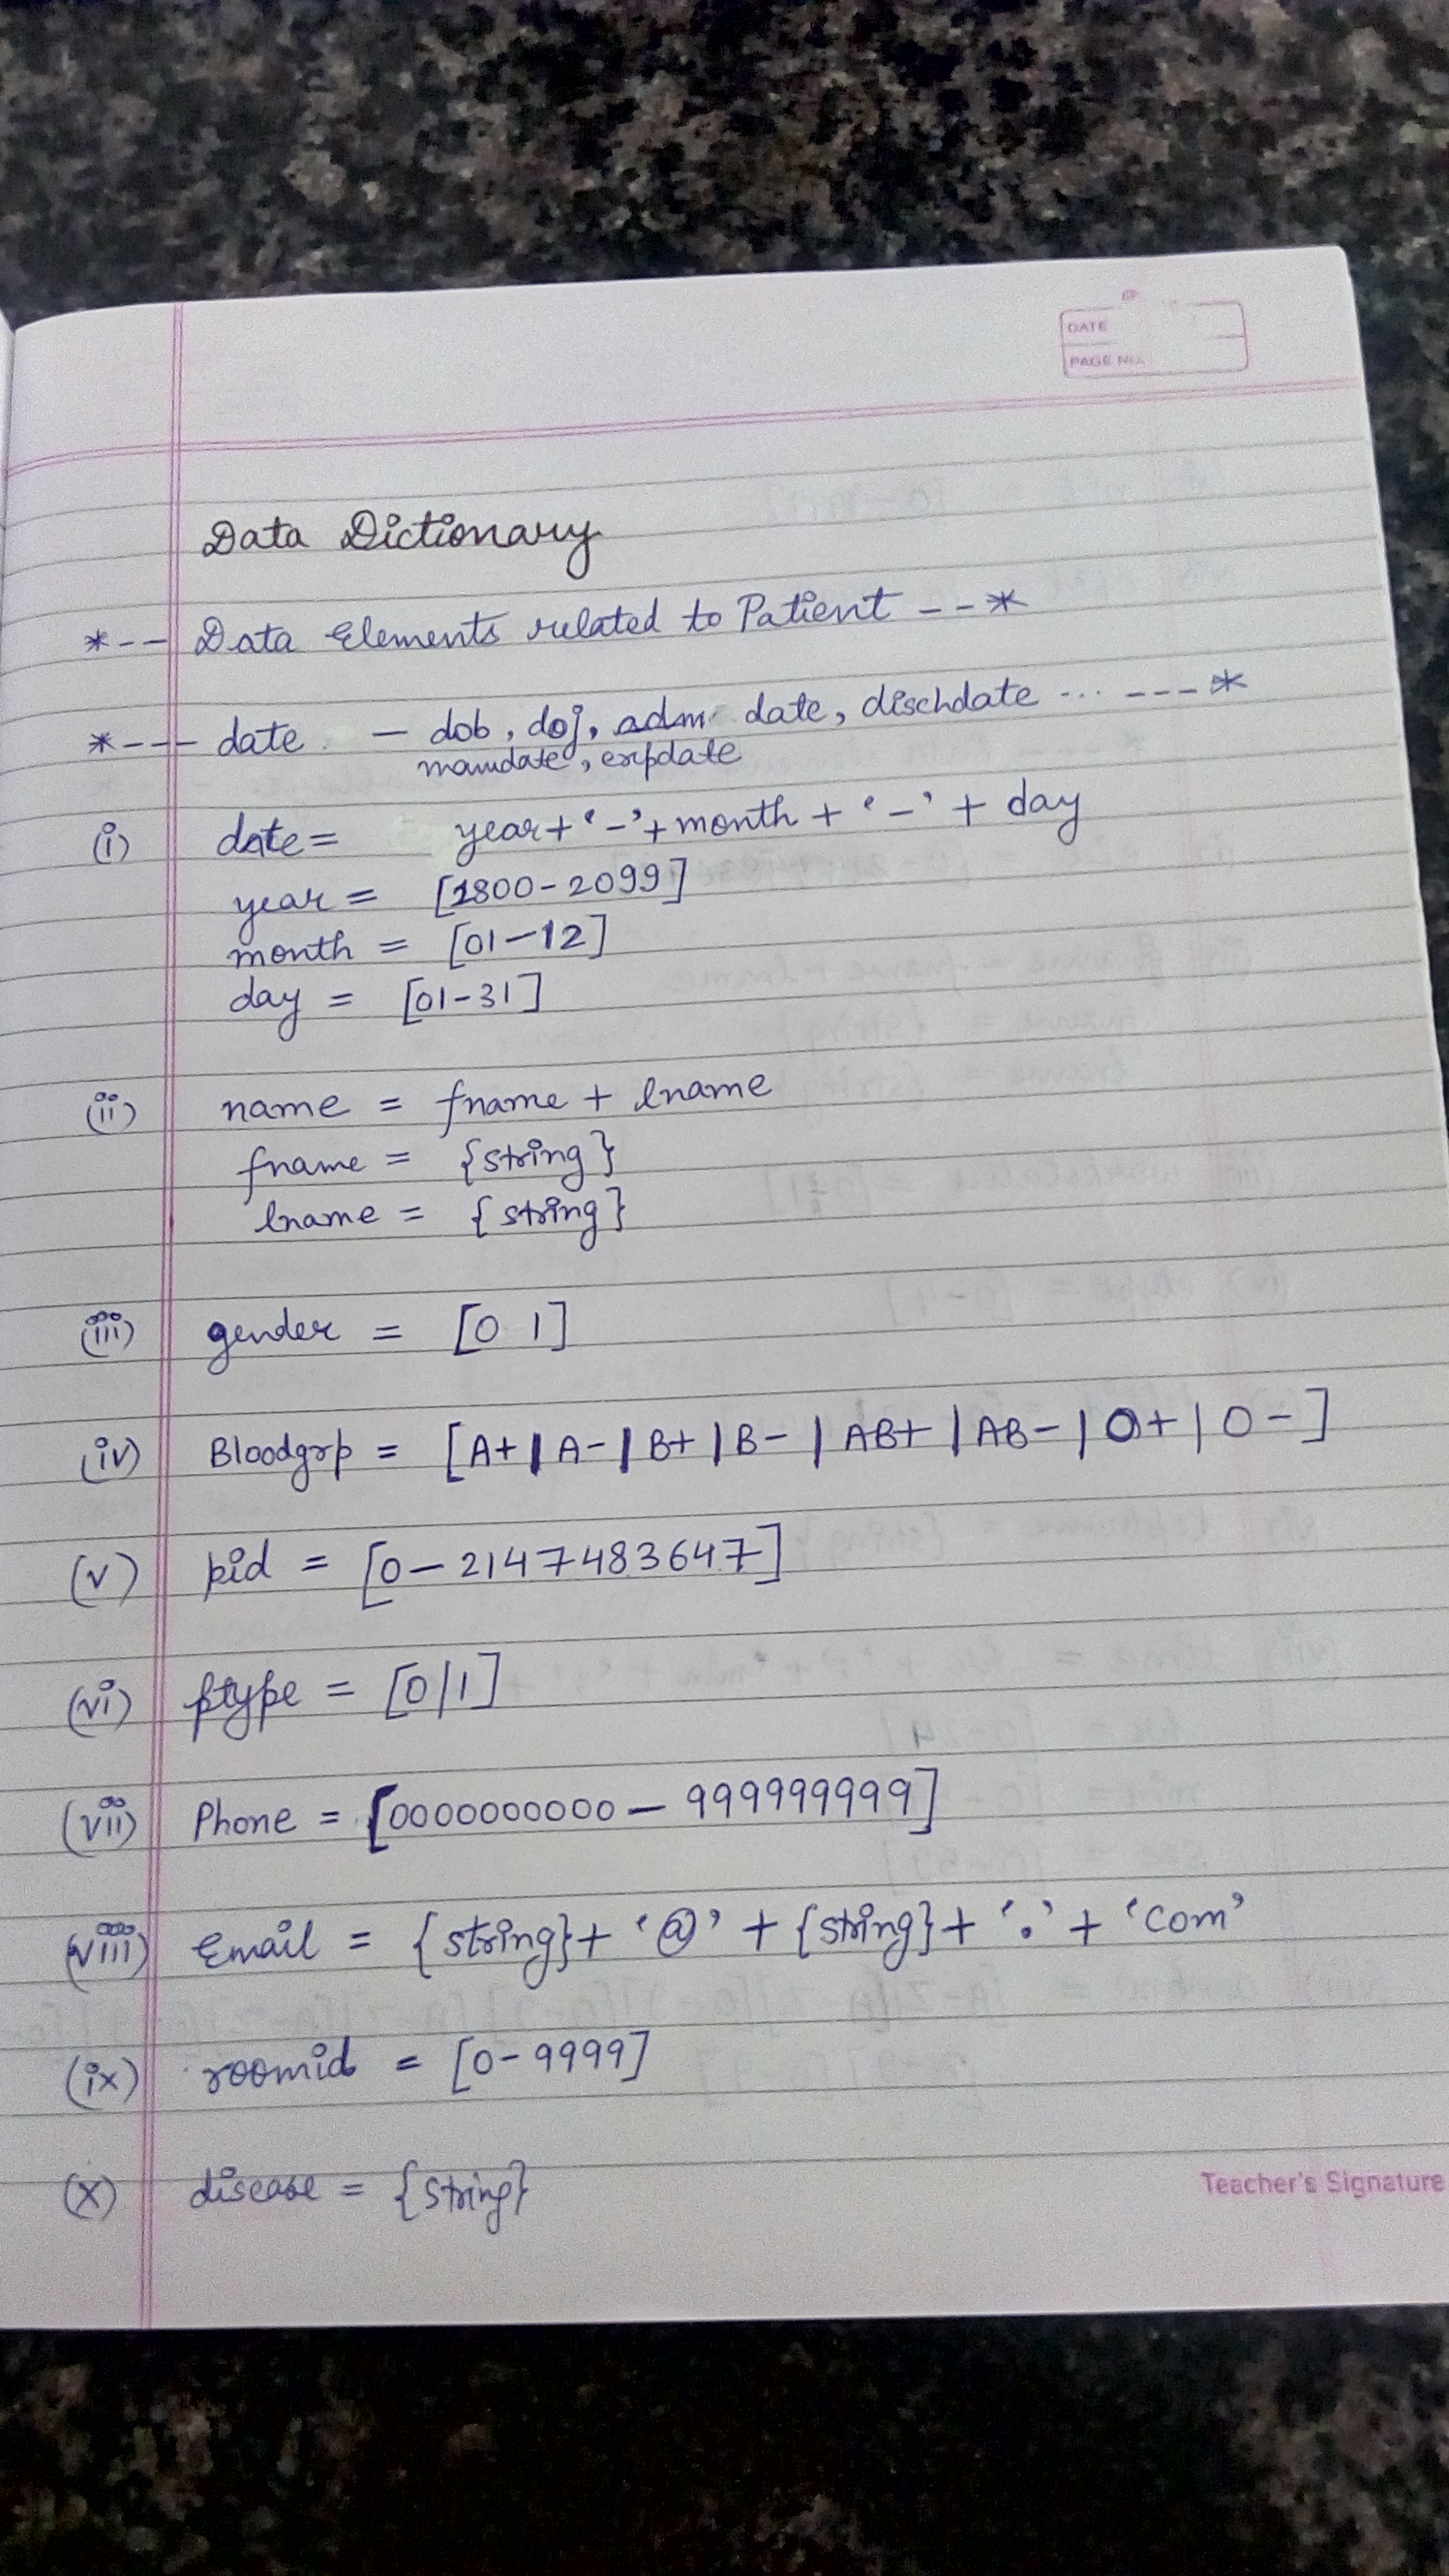 DATE
PAGE NO.
Data Dictionary
*-- Data Elements related to Patient --*
*--- date - dob, doj, adm date, dischdate ... ---*
manudate, expdate
(i) date = year+'-'+month+'-'+day
year = [1800-2099]
month = [01-12]
day = [01-31]
(ii) name = fname + lname
fname = {string}
lname = {string}
(iii) gender = [0 1]
(iv) Bloodgrp = [A+|A-|B+|B-|AB+|AB-|O+|O-]
(v) pid = [0-2147483647]
(vi) ptype = [0/1]
(vii) Phone = [0000000000-999999999]
(viii) Email = {string}+'@'+{string}+'.'+'com'
(ix) roomid = [0-9999]
(x) disease = {string}
Teacher's Signature